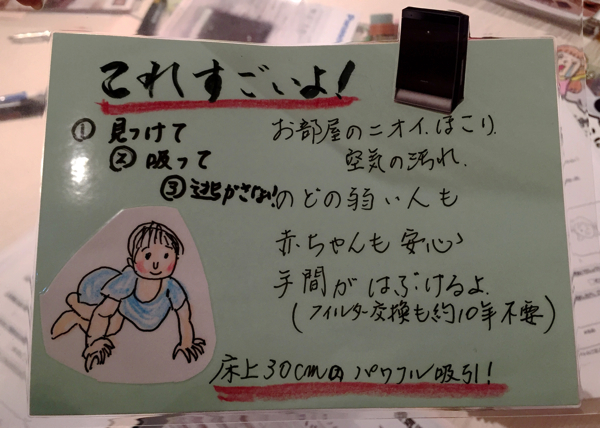 これすごいよ!
① 見つけて
② 吸って
③ 逃がさない!
お部屋のニオイ.ほこり.
空気の汚れ.
のどの弱い人も
赤ちゃんも安心
手間がはぶけるよ.
(フィルター交換も約10年不要)
床上30cmのパワフル吸引!